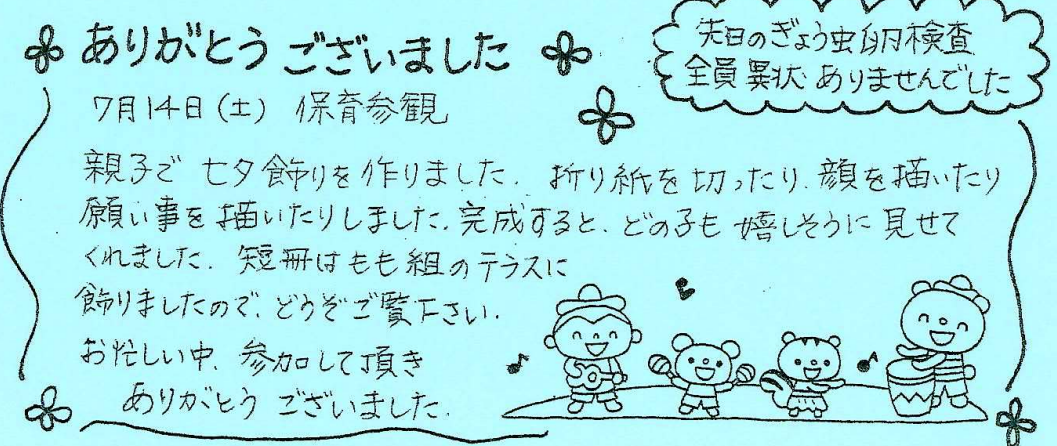 ありがとうございました
先日のぎょう虫卵検査
全員異状ありませんでした
7月14日(土) 保育参観
親子で七夕飾りを作りました. 折り紙を切ったり、顔を描いたり
願い事を描いたりしました. 完成すると、どの子も嬉しそうに見せて
くれました. 短冊はもも組のテラスに
飾りましたので、どうぞご覧下さい.
お忙しい中、参加して頂き
ありがとうございました.